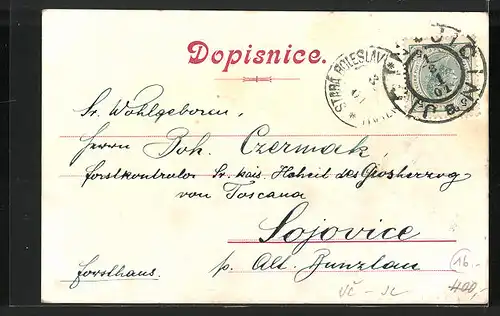 Dopisnice.
STARÁ BOLESLAV
JIČIN
Sr. Wohlgeboren,
Herrn Joh. Czermak
Forstkontrolor Sr. kais. Hoheit des Grosherzog
von Toscana
Sojovice
p. Alt. Bunzlau
Forsthaus.
16.-
400,-